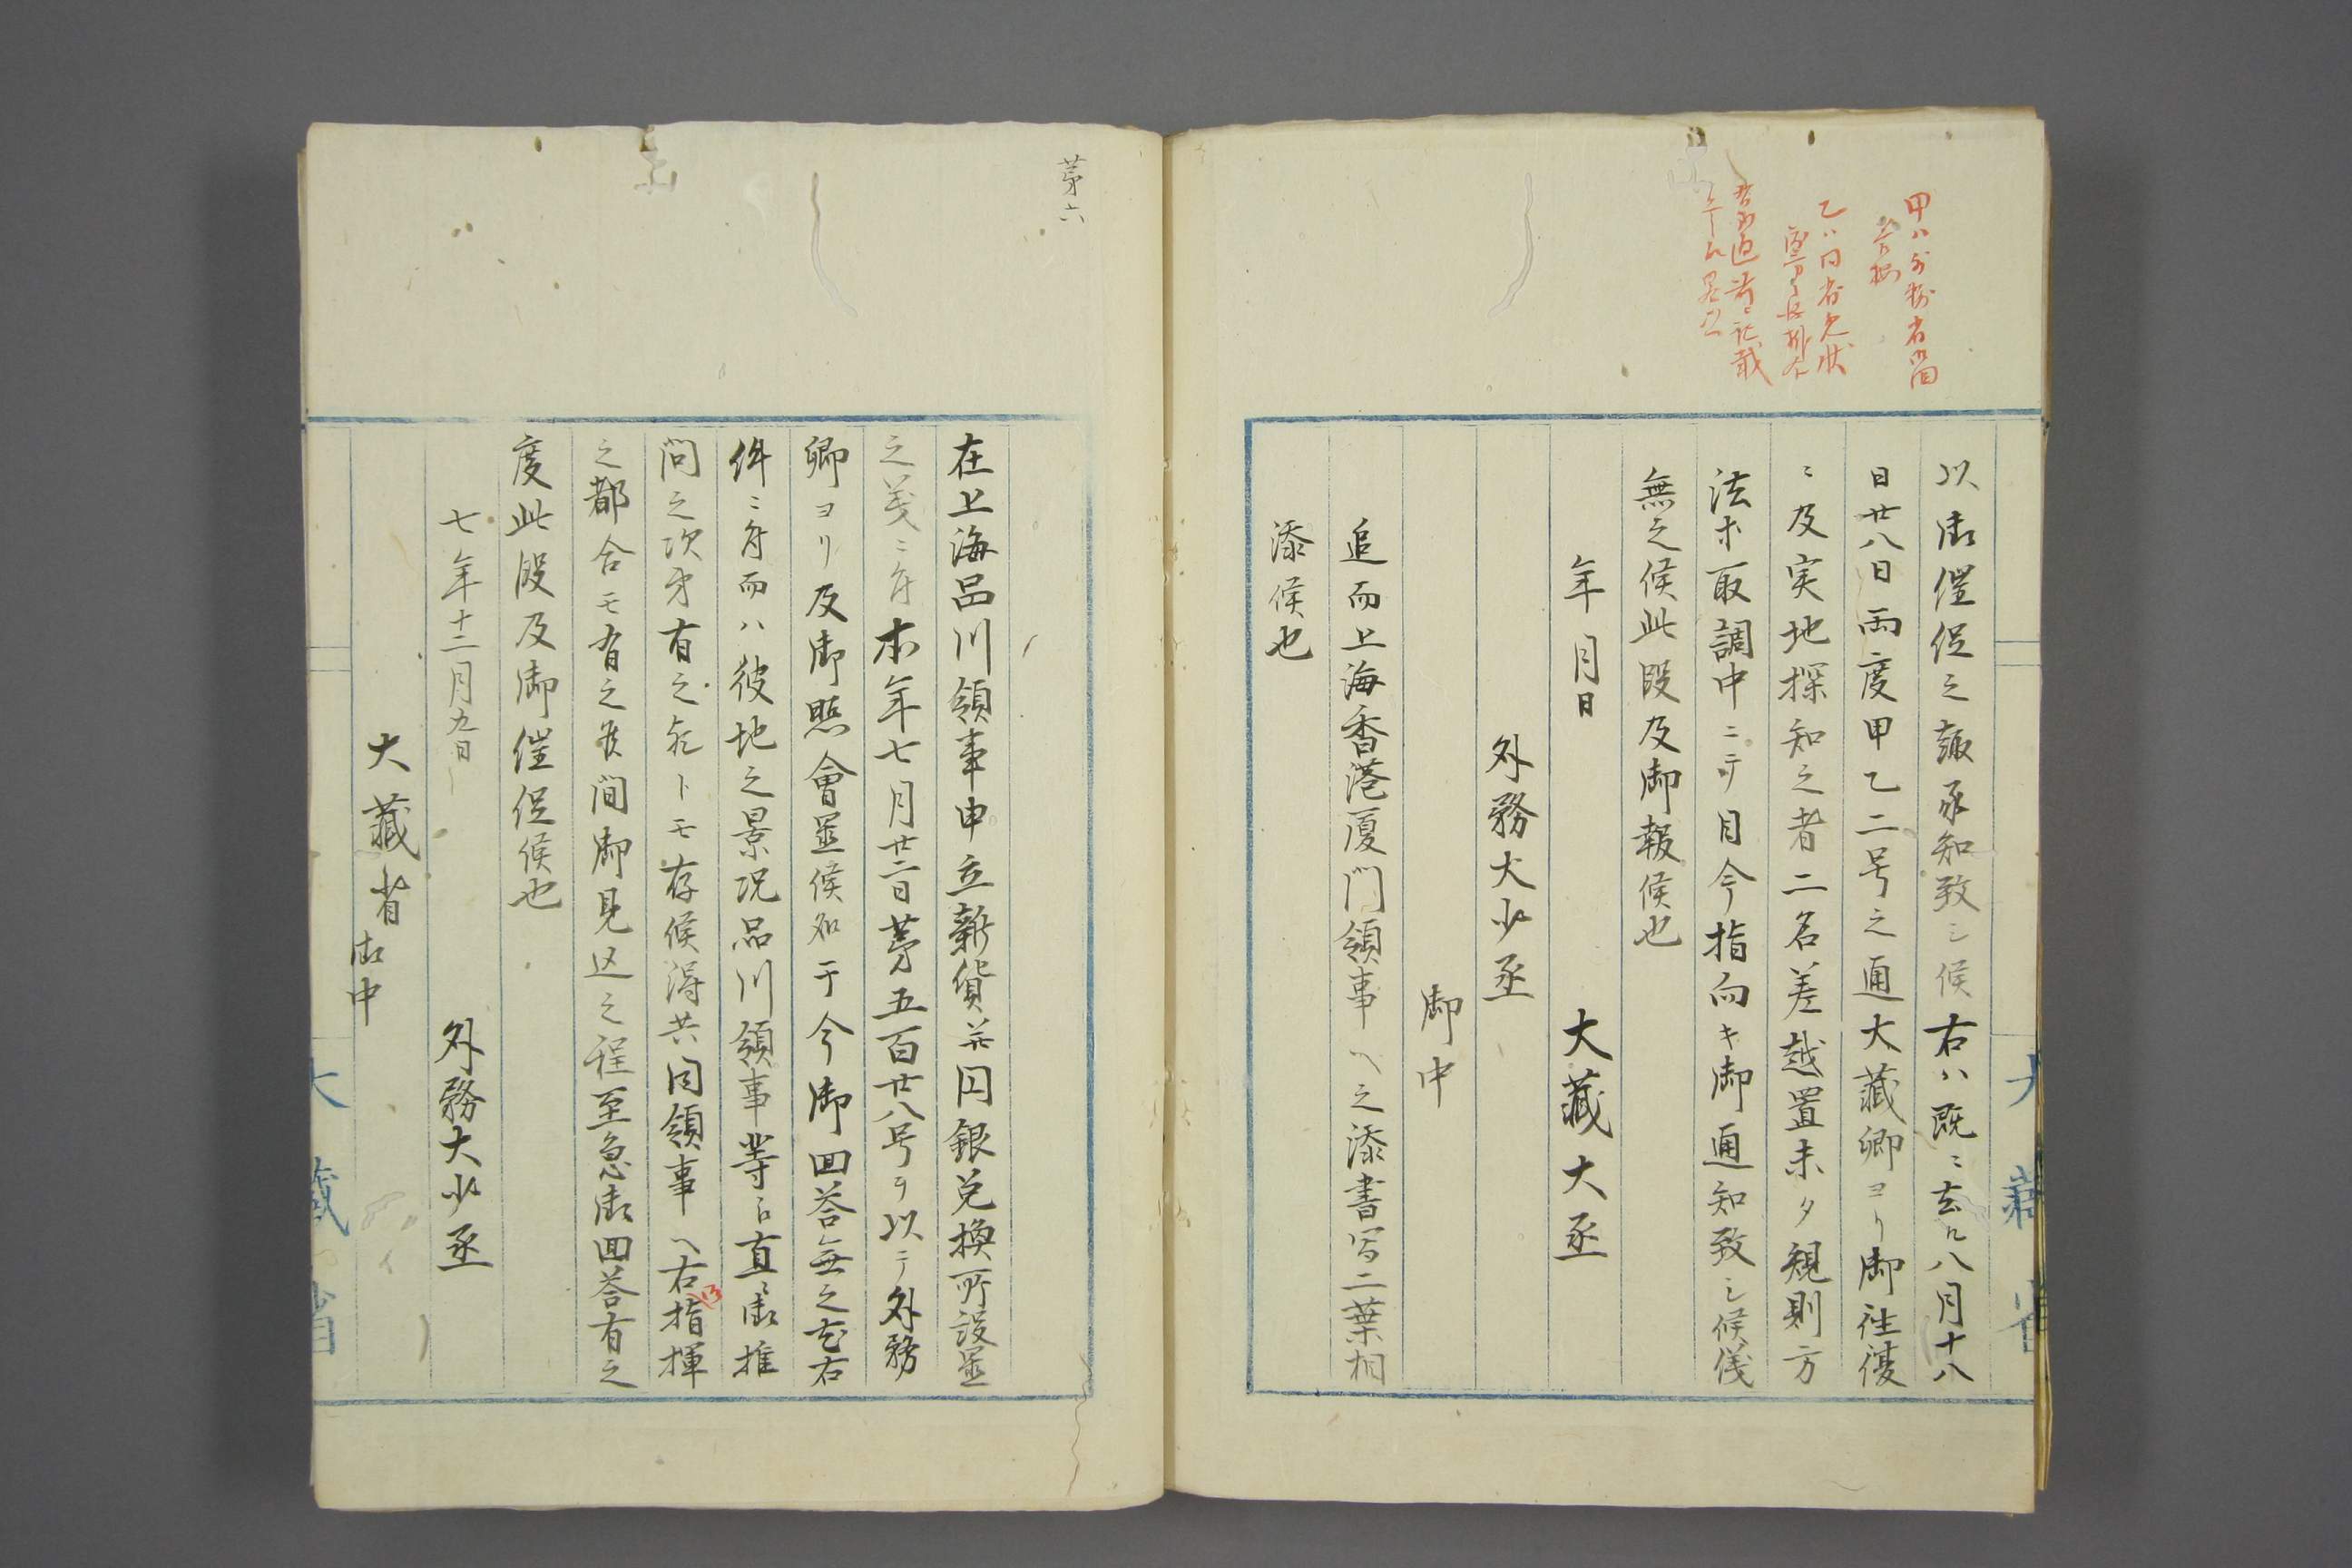 甲ハ外務省御回
答按
乙ハ同省先状
以御催促之趣承知致シ候右ハ既ニ去ル八月十八
日廿八日両度甲乙二号之通大藏卿ヨリ御往復
ニ及実地探知之者二名差越置未タ規則方
法ホ取調中ニテ目今指向キ御通知致シ候儀
無之候此段及御報候也
年月日
大藏大丞
外務大少丞
御中
追而上海香港厦門領事ヘ之添書写二葉相
添候也
大藏省
第六
在上海品川領事申立新貨并円銀兌換所設置
之義ニ付本年七月廿二日第五百廿八号ヲ以テ外務
卿ヨリ及御照會置候処于今御回答無之右
件ニ付而ハ彼地之景况品川領事等ニ直ニ御推
問之次第有之トモ存候得共同領事ヘ右指揮
之都合モ有之候間御見込之程至急御回答有之
度此段及御催促候也
七年十二月九日
外務大少丞
大藏省御中
大藏省